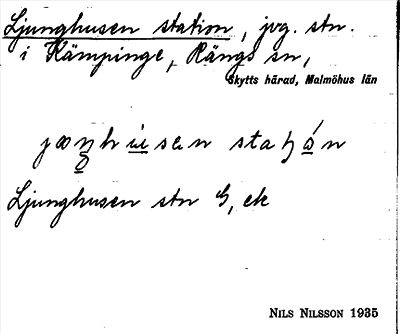 Ljunghusen station, jvg. stn.
i Kämpinge, Rängs sn,
Skytts härad, Malmöhus län
Ljunghusen stn G, ek
NILS NILSSON 1935